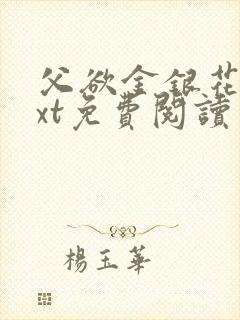 父欲金銀花
xt免費閱讀
楊玉華